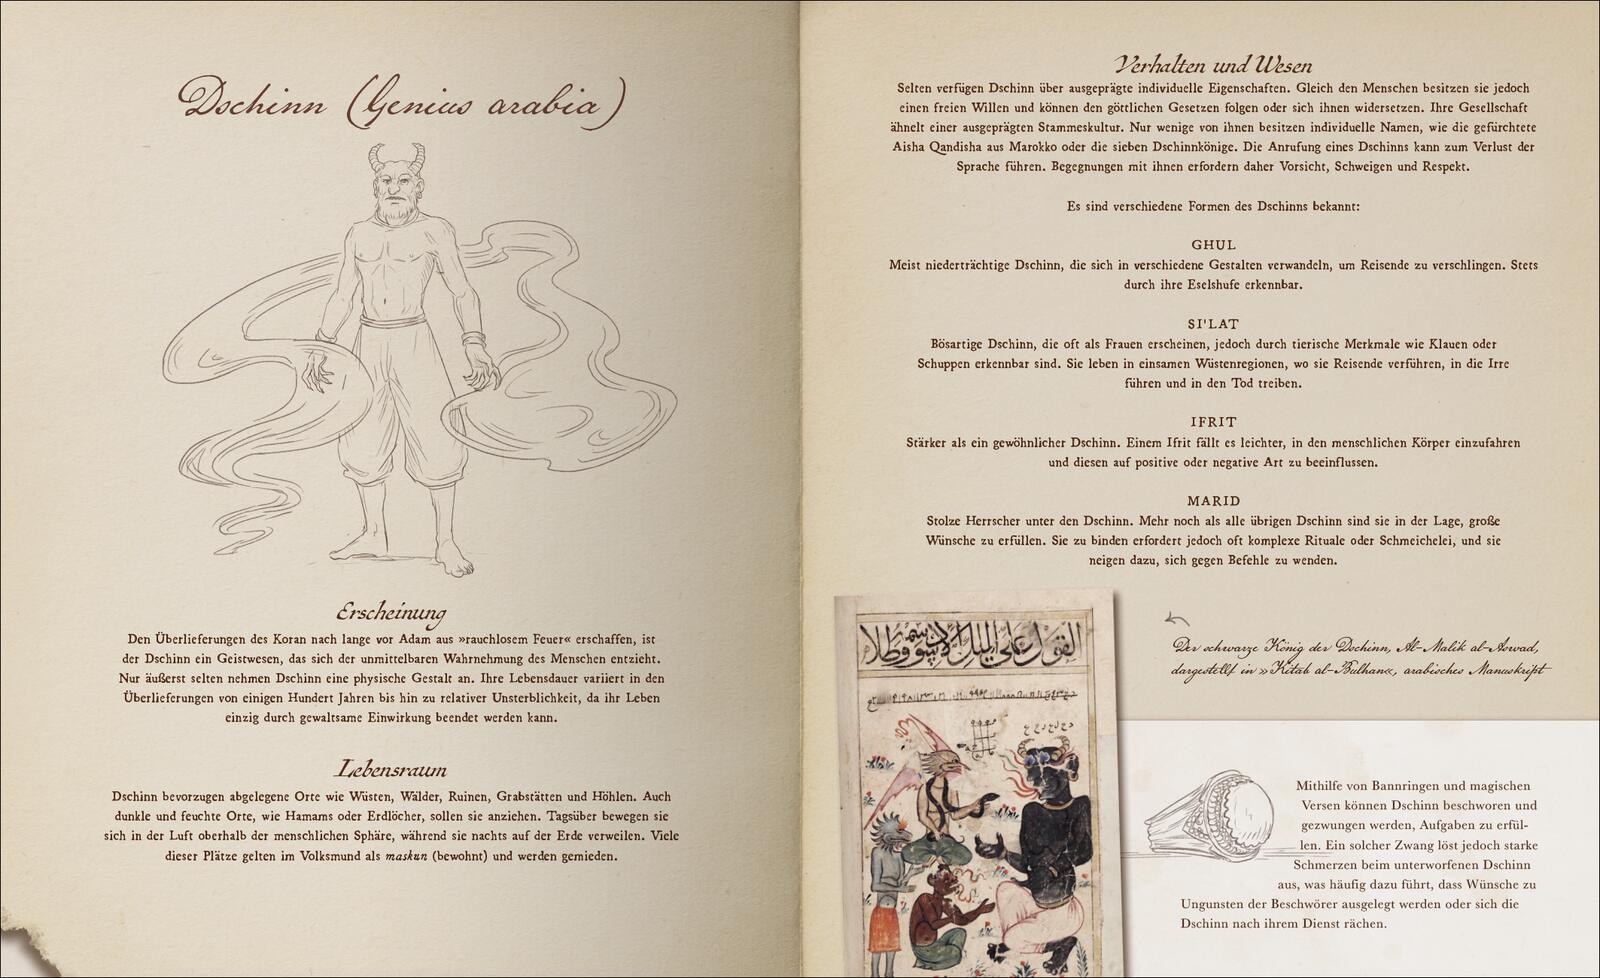 Dschinn (Genius arabia)
Erscheinung
Den Überlieferungen des Koran nach lange vor Adam aus »rauchlosem Feuer« erschaffen, ist
der Dschinn ein Geistwesen, das sich der unmittelbaren Wahrnehmung des Menschen entzieht.
Nur äußerst selten nehmen Dschinn eine physische Gestalt an. Ihre Lebensdauer variiert in den
Überlieferungen von einigen Hundert Jahren bis hin zu relativer Unsterblichkeit, da ihr Leben
einzig durch gewaltsame Einwirkung beendet werden kann.
Lebensraum
Dschinn bevorzugen abgelegene Orte wie Wüsten, Wälder, Ruinen, Grabstätten und Höhlen. Auch
dunkle und feuchte Orte, wie Hamams oder Erdlöcher, sollen sie anziehen. Tagsüber bewegen sie
sich in der Luft oberhalb der menschlichen Sphäre, während sie nachts auf der Erde verweilen. Viele
dieser Plätze gelten im Volksmund als maskun (bewohnt) und werden gemieden.
Verhalten und Wesen
Selten verfügen Dschinn über ausgeprägte individuelle Eigenschaften. Gleich den Menschen besitzen sie jedoch
einen freien Willen und können den göttlichen Gesetzen folgen oder sich ihnen widersetzen. Ihre Gesellschaft
ähnelt einer ausgeprägten Stammeskultur. Nur wenige von ihnen besitzen individuelle Namen, wie die gefürchtete
Aisha Qandisha aus Marokko oder die sieben Dschinnkönige. Die Anrufung eines Dschinns kann zum Verlust der
Sprache führen. Begegnungen mit ihnen erfordern daher Vorsicht, Schweigen und Respekt.
Es sind verschiedene Formen des Dschinns bekannt:
GHUL
Meist niederträchtige Dschinn, die sich in verschiedene Gestalten verwandeln, um Reisende zu verschlingen. Stets
durch ihre Eselshufe erkennbar.
SI'LAT
Bösartige Dschinn, die oft als Frauen erscheinen, jedoch durch tierische Merkmale wie Klauen oder
Schuppen erkennbar sind. Sie leben in einsamen Wüstenregionen, wo sie Reisende verführen, in die Irre
führen und in den Tod treiben.
IFRIT
Stärker als ein gewöhnlicher Dschinn. Einem Ifrit fällt es leichter, in den menschlichen Körper einzufahren
und diesen auf positive oder negative Art zu beeinflussen.
MARID
Stolze Herrscher unter den Dschinn. Mehr noch als alle übrigen Dschinn sind sie in der Lage, große
Wünsche zu erfüllen. Sie zu binden erfordert jedoch oft komplexe Rituale oder Schmeichelei, und sie
neigen dazu, sich gegen Befehle zu wenden.
Der schwarze König der Dschinn, Al-Malik al-Aswad,
dargestellt in »Kitab al-Bulhan«, arabisches Manuskript
القول على الملك الاسود
Mithilfe von Bannringen und magischen
Versen können Dschinn beschworen und
gezwungen werden, Aufgaben zu erfül-
len. Ein solcher Zwang löst jedoch starke
Schmerzen beim unterworfenen Dschinn
aus, was häufig dazu führt, dass Wünsche zu
Ungunsten der Beschwörer ausgelegt werden oder sich die
Dschinn nach ihrem Dienst rächen.